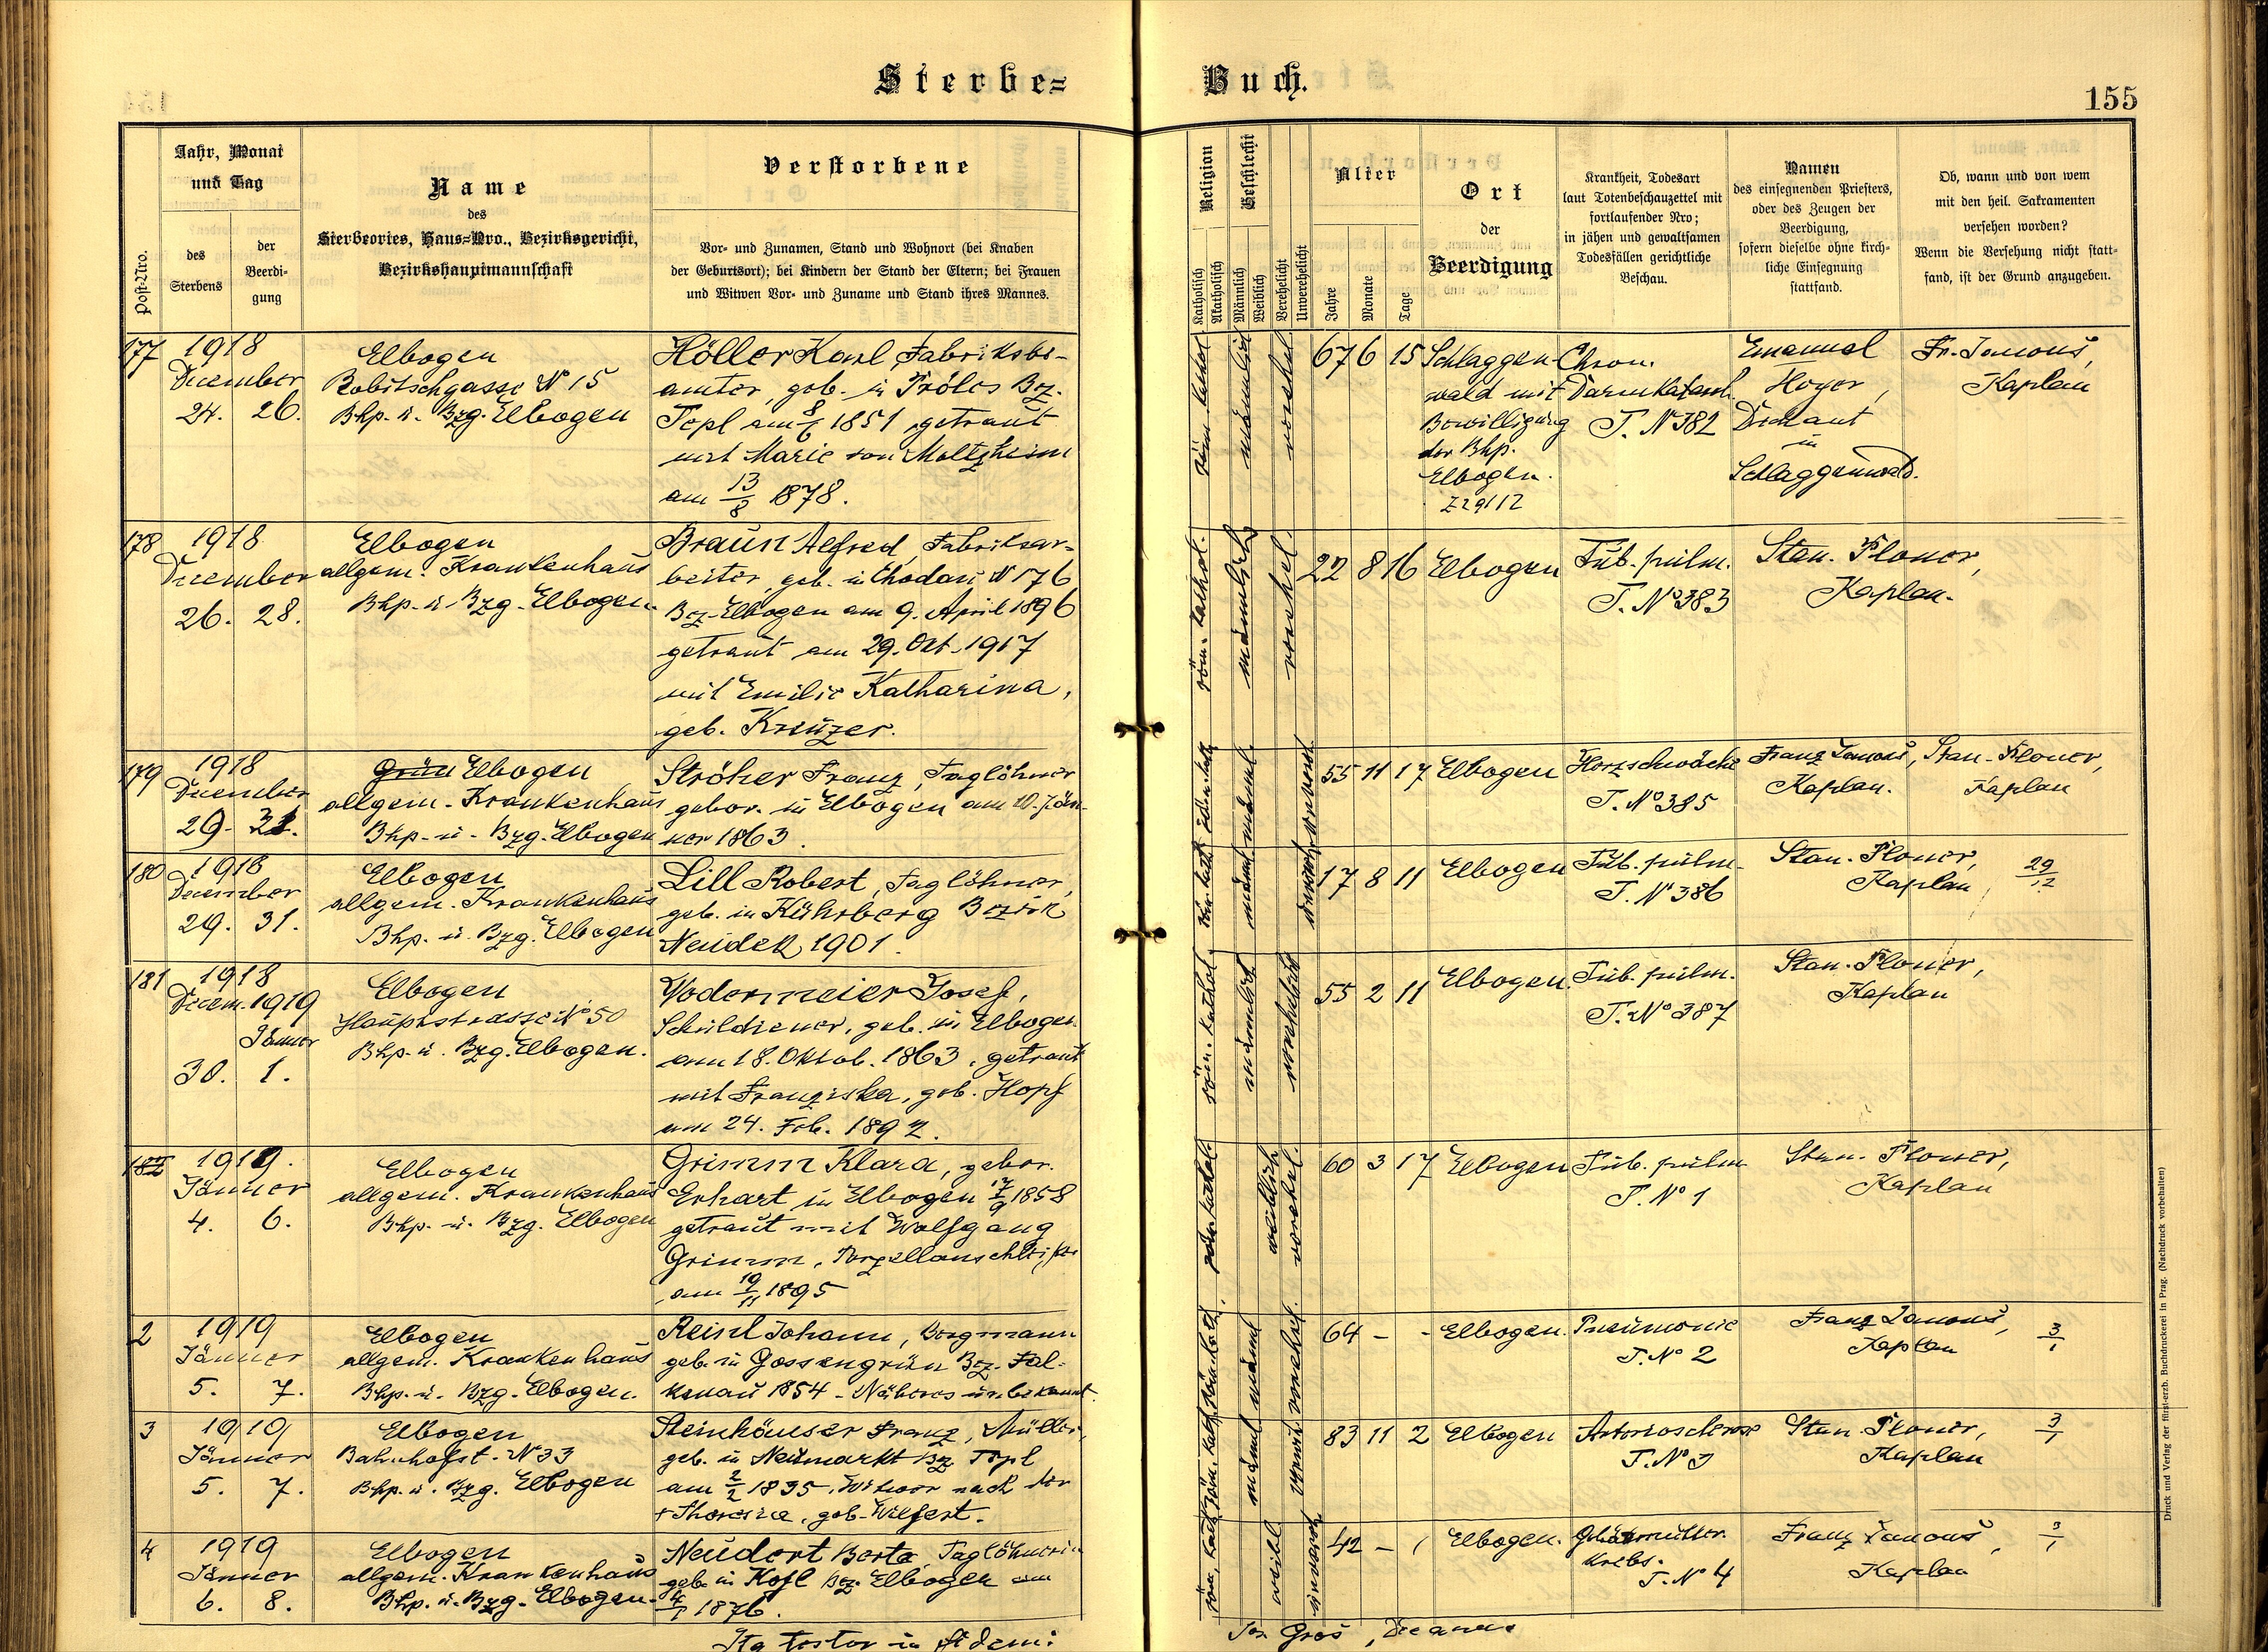 Sterbe=
Buch.
155
Post-Nro.
Jahr, Monat
und Tag
des
Sterbens
der
Beerdi-
gung
Name
des
Sterbeortes, Haus=Nro., Bezirksgericht,
Bezirkshauptmannschaft
Verstorbene
Vor- und Zunamen, Stand und Wohnort (bei Knaben
der Geburtsort); bei Kindern der Stand der Eltern; bei Frauen
und Witwen Vor- und Zuname und Stand ihres Mannes.
Religion
Katholisch
Akatholisch
Geschlecht
Männlich
Weiblich
Verehelicht
Unverehelicht
Alter
Jahre
Monate
Tage
Ort
der
Beerdigung
Krankheit, Todesart
laut Totenbeschauzettel mit
fortlaufender Nro;
in jähen und gewaltsamen
Todesfällen gerichtliche
Beschau.
Namen
des einsegnenden Priesters,
oder des Zeugen der
Beerdigung,
sofern dieselbe ohne kirch-
liche Einsegnung
stattfand.
Ob, wann und von wem
mit den heil. Sakramenten
versehen worden?
Wenn die Versehung nicht statt-
fand, ist der Grund anzugeben.
177
1918
December
24. 26.
Elbogen
Robitschgasse N° 15
Bhp. u. Bzg. Elbogen
Höller Karl, Fabriksbe-
amter, geb. in Tröles Bez.
Tepl am 8/6 1851, getraut
mit Marie von Moltzheim
am 13/8 1878.
röm. kathol.
männlich
verehel.
67 6 15
Schlaggen-
wald mit
Bewilligung
der Bhp.
Elbogen.
Z 29112
Chron.
Darmkatarrh
T. N° 382
Emanuel
Hoyer,
Dechant
in
Schlaggenwald.
Fr. Janouš,
Kaplan
178
1918
December
26. 28.
Elbogen
allgem. Krankenhaus
Bhp. u. Bzg. Elbogen.
Braun Alfred, Fabriksar-
beiter, geb. in Chodau N 176
Bez. Elbogen am 9. April 1896
getraut am 29. Okt. 1917
mit Emilie Katharina,
geb. Kreuzer.
röm. kathol.
männlich
verehel.
22 8 16
Elbogen
Tub. pulm.
T. N° 383
Stan. Ploner,
Kaplan.
179
1918
December
29. 31.
Grün Elbogen
allgem. Krankenhaus
Bhp. u. Bzg. Elbogen
Ströher Franz, Taglöhner
gebor. in Elbogen am 10. Jän-
ner 1863.
männl.
55 11 17
Elbogen
Herzschwäche
T. N° 385
Franz Janouš,
Kaplan.
Stan. Ploner,
Kaplan
180
1918
December
29. 31.
Elbogen
allgem. Krankenhaus
Bhp. u. Bzg. Elbogen
Lill Robert, Taglöhner,
geb. in Kührberg Bezirk
Neudek 1901.
röm. kath.
männl.
17 8 11
Elbogen
Tub. pulm.
T. N° 386
Stan. Ploner,
Kaplan
29/12
181
1918
Decem. 1919
Jänner
30. 1.
Elbogen
Hauptstrasse N° 50
Bhp. u. Bzg. Elbogen.
Wodermeier Josef,
Schuldiener, geb. in Elbogen
am 18. Oktob. 1863, getraut
mit Franziska, geb. Hopf
am 24. Feb. 1892.
röm. kathol.
männlich
verehelicht
55 2 11
Elbogen.
Tub. pulm.
T. N° 387
Stan. Ploner,
Kaplan
182
1919.
Jänner
4. 6.
Elbogen
allgem. Krankenhaus
Bhp. u. Bzg. Elbogen
Grimm Klara, gebor.
Erhart in Elbogen 17/9 1858
getraut mit Wolfgang
Grimm, Porzellanschleifer
am 19/11 1895
röm. kathol.
weiblich
verehel.
60 3 17
Elbogen
Tub. pulm
T. N° 1
Stan. Ploner,
Kaplan
2
1919
Jänner
5. 7.
Elbogen
allgem. Krankenhaus
Bhp. u. Bzg. Elbogen.
Reinl Johann, Bergmann
geb. in Gossengrün Bez. Fal-
kenau 1854 - Näheres unbekannt.
röm. kath.
männl.
verehel.
64 - -
Elbogen.
Pneumonie
T. N° 2
Franz Janouš,
Kaplan
3/1
3
1919
Jänner
5. 7.
Elbogen
Bahnhofst. N° 33
Bhp. u. Bzg. Elbogen
Steinhäuser Franz, Müller,
geb. in Neumarkt Bz Tepl
am 2/2 1835, Witwer nach der
+ Theresia, geb. Wilfert.
röm. kath.
männl.
verwit.
83 11 2
Elbogen
Arterioscleros
T. N° 3
Stan. Ploner,
Kaplan
3/1
4
1919
Jänner
6. 8.
Elbogen
allgem. Krankenhaus
Bhp. u. Bzg. Elbogen.
Neudert Berta, Taglöhnerin
geb. in Kofl Bez. Elbogen am
4/1 1876.
röm. kath.
weibl
42 -
Elbogen.
Gebärmutter
krebs.
T. N° 4
Franz Janouš,
Kaplan
3/1
Ita testor in fidem:
Jos. Gros, Decanus
Druck und Verlag der fürst-erzb. Buchdruckerei in Prag. (Nachdruck vorbehalten)